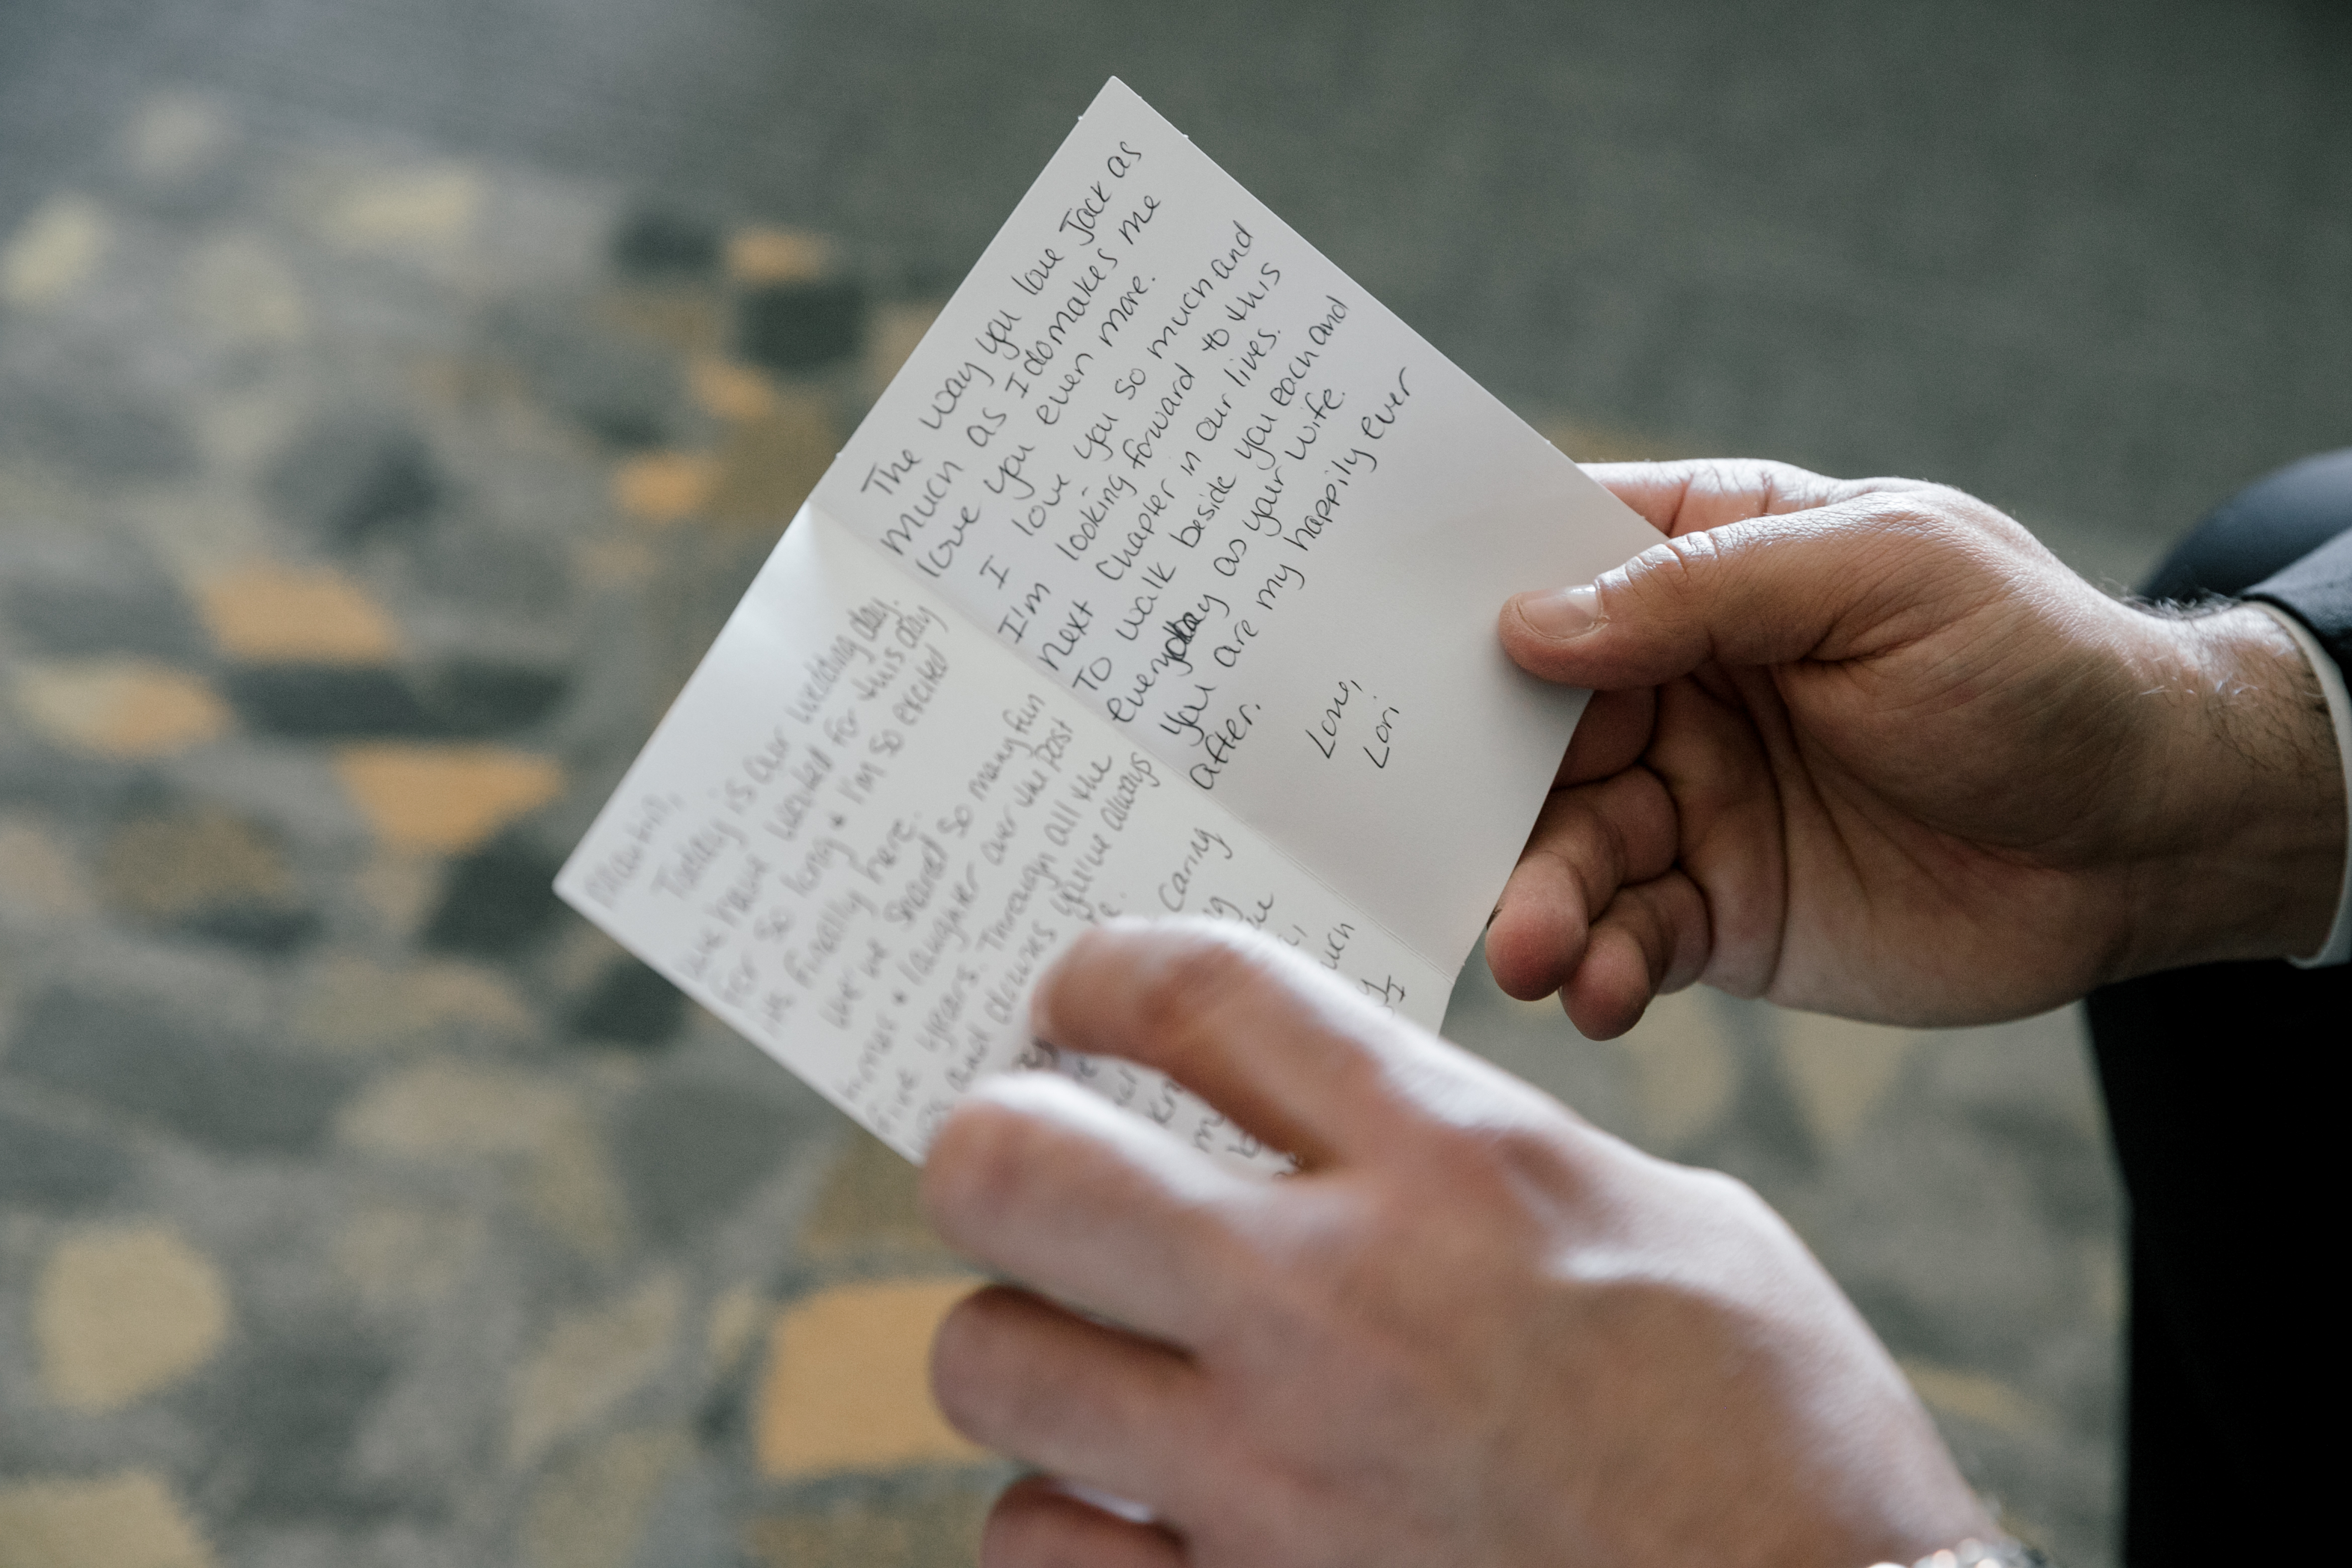 Martin,
Today is our wedding day.
We have waited for this day
for so long + I'm so excited
it's finally here.
We've shared so many fun
humor + laughter over the past
five years. Through all the
and downs you've always
caring
much
I
The way you love Jack as
much as I do makes me
love you even more.
I love you so much and
I'm looking forward to this
next chapter in our lives.
To walk beside you each and
everyday as your wife.
You are my happily ever
after.
Love,
Lori